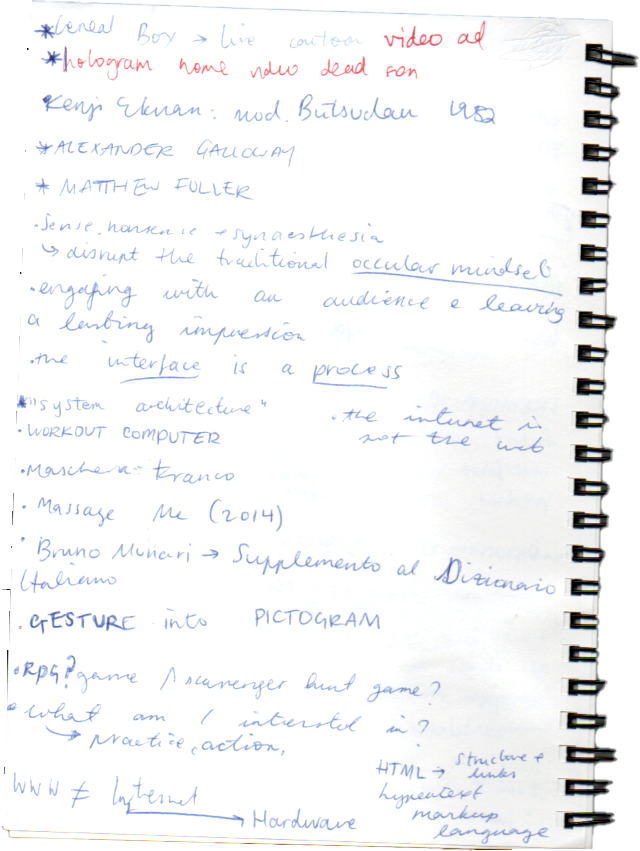 *Cereal Box → live cartoon video ad
*hologram home video dead son
Kenji Ekuan: mod. Butsudan 1982
*ALEXANDER GALLOWAY
* MATTHEW FULLER
·sense, nonsense + synaesthesia
↳ disrupt the traditional occular mindset
·engaging with an audience e leaving
a lasting impression
·the interface is a process
*"system architecture"
·WORKOUT COMPUTER
·the internet is
not the web
·Maschera- Franco
· Massage Me (2014)
· Bruno Munari → Supplemento al Dizionario
Italiano
· GESTURE into PICTOGRAM
·RPG? game / scavenger hunt game?
· What am I interested in?
↳ practice, action,
WWW ≠ Internet
→ Hardware
HTML → structure +
links
hypertext
markup
language